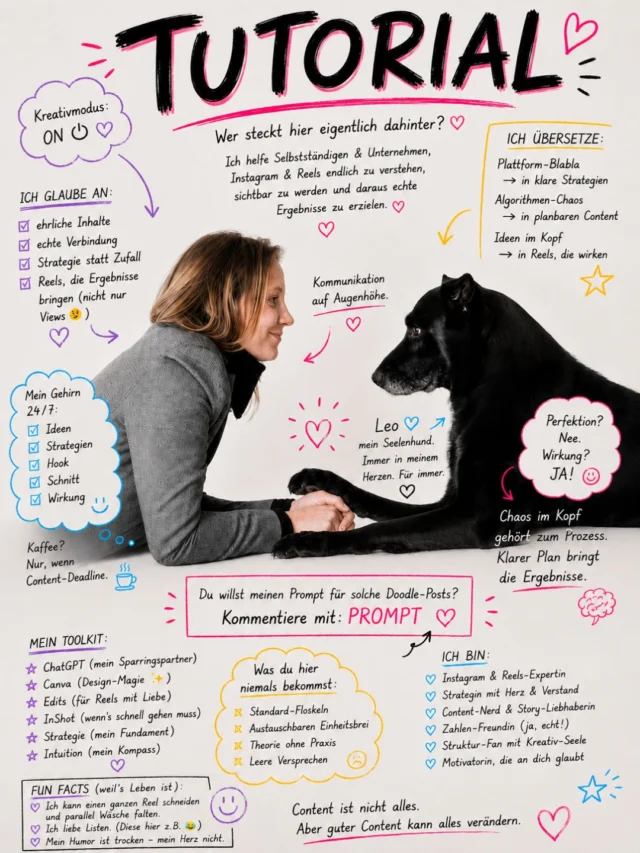 TUTORIAL
Kreativmodus:
ON
Wer steckt hier eigentlich dahinter?
Ich helfe Selbstständigen & Unternehmen,
Instagram & Reels endlich zu verstehen,
sichtbar zu werden und daraus echte
Ergebnisse zu erzielen.
ICH ÜBERSETZE:
Plattform-Blabla
→ in klare Strategien
Algorithmen-Chaos
→ in planbaren Content
Ideen im Kopf
→ in Reels, die wirken
ICH GLAUBE AN:
ehrliche Inhalte
echte Verbindung
Strategie statt Zufall
Reels, die Ergebnisse
bringen (nicht nur
Views 😉)
Kommunikation
auf Augenhöhe.
Mein Gehirn
24/7:
Ideen
Strategien
Hook
Schnitt
Wirkung
Leo
mein Seelenhund.
Immer in meinem
Herzen. Für immer.
Perfektion?
Nee.
Wirkung?
JA!
Chaos im Kopf
gehört zum Prozess.
Klarer Plan bringt
die Ergebnisse.
Kaffee?
Nur, wenn
Content-Deadline.
Du willst meinen Prompt für solche Doodle-Posts?
Kommentiere mit: PROMPT
MEIN TOOLKIT:
ChatGPT (mein Sparringspartner)
Canva (Design-Magie ✨)
Edits (für Reels mit Liebe)
InShot (wenn's schnell gehen muss)
Strategie (mein Fundament)
Intuition (mein Kompass)
Was du hier
niemals bekommst:
Standard-Floskeln
Austauschbaren Einheitsbrei
Theorie ohne Praxis
Leere Versprechen
ICH BIN:
Instagram & Reels-Expertin
Strategin mit Herz & Verstand
Content-Nerd & Story-Liebhaberin
Zahlen-Freundin (ja, echt!)
Struktur-Fan mit Kreativ-Seele
Motivatorin, die an dich glaubt
FUN FACTS (weil's Leben ist):
Ich kann einen ganzen Reel schneiden
und parallel Wäsche falten.
Ich liebe Listen. (Diese hier z.B. 😂)
Mein Humor ist trocken – mein Herz nicht.
Content ist nicht alles.
Aber guter Content kann alles verändern.